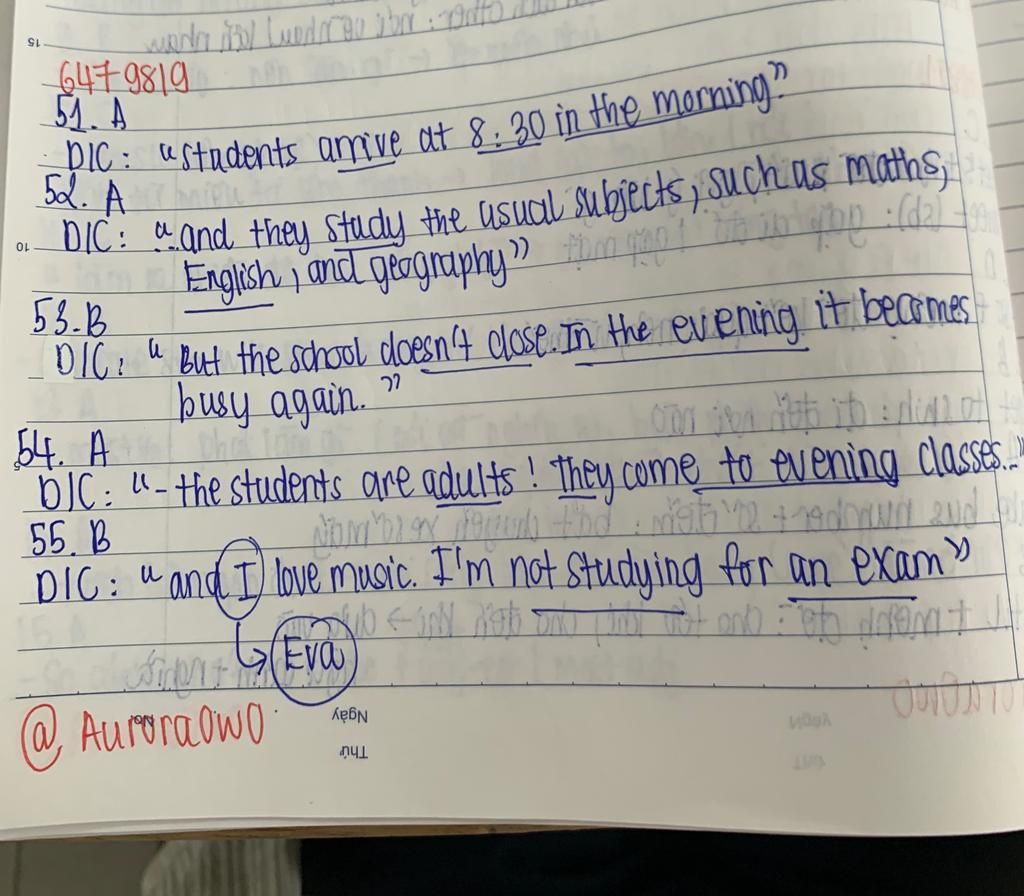 15
6479819
51. A
DIC: "students arrive at 8:30 in the morning"
52. A
10 DIC: "and they study the usual subjects, such as maths,
English, and geography"
53. B
DIC: "But the school doesn't close. In the evening it becomes
busy again."
54. A
DIC: "- the students are adults! they come to evening classes.."
55. B
DIC: "and I love music. I'm not studying for an exam"
Eva
@AuroraOwO
Ngày
Thứ